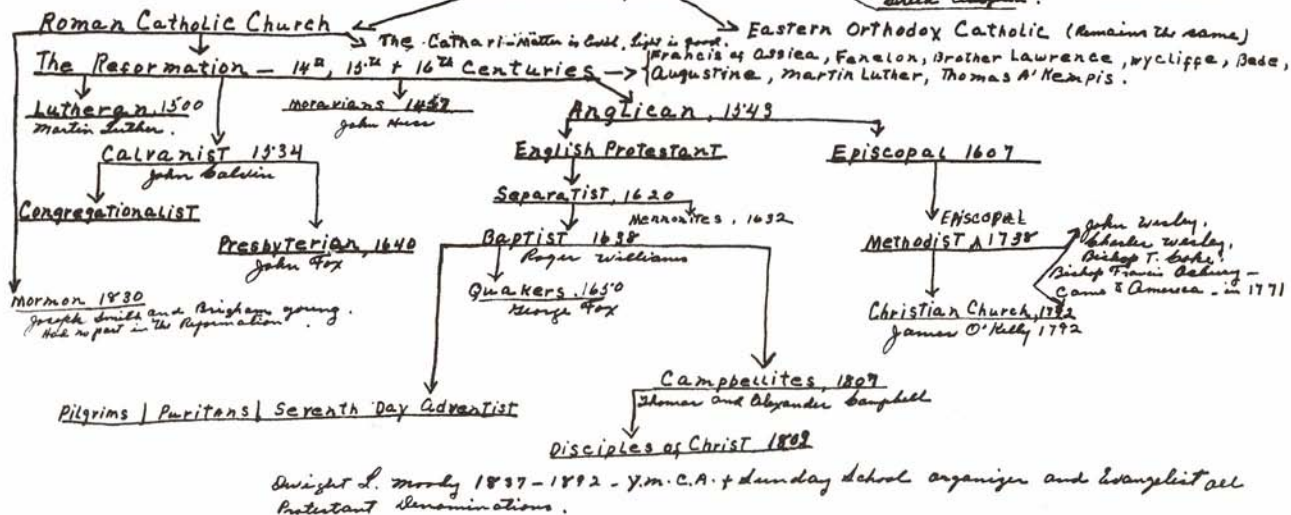 Roman Catholic Church
Eastern Orthodox Catholic (Remains the same)
The Cathari - Matter is evil, Light is good.
The Reformation - 14th, 15th + 16th Centuries
Francis of Assiea, Fenelon, Brother Lawrence, Wycliffe, Bede,
Augustine, Martin Luther, Thomas A' Kempis.
Lutheran, 1500
Martin Luther.
Moravians 1457
John Huss
Anglican, 1543
Calvanist 1534
John Calvin
English Protestant
Episcopal 1607
Congregationalist
Separatist, 1620
Mennonites, 1632
Presbyterian, 1640
John Fox
Baptist 1638
Roger Williams
Episcopal
Methodist ^ 1738
John Wesley,
Charles Wesley,
Bishop T. Coke,
Bishop Francis Asbury -
Came to America - in 1771
Quakers, 1650
George Fox
Mormon 1830
Joseph Smith and Brigham young.
Had no part in the Reformation.
Christian Church, 1792
James O'Kelly 1792
Campbellites, 1807
Thomas and Alexander Campbell
Pilgrims | Puritans | Seventh Day Adventist
Disciples of Christ 1809
Dwight L. Moody 1837-1892 - Y.M.C.A. + Sunday School organizer and Evangelist all
Protestant Denominations.